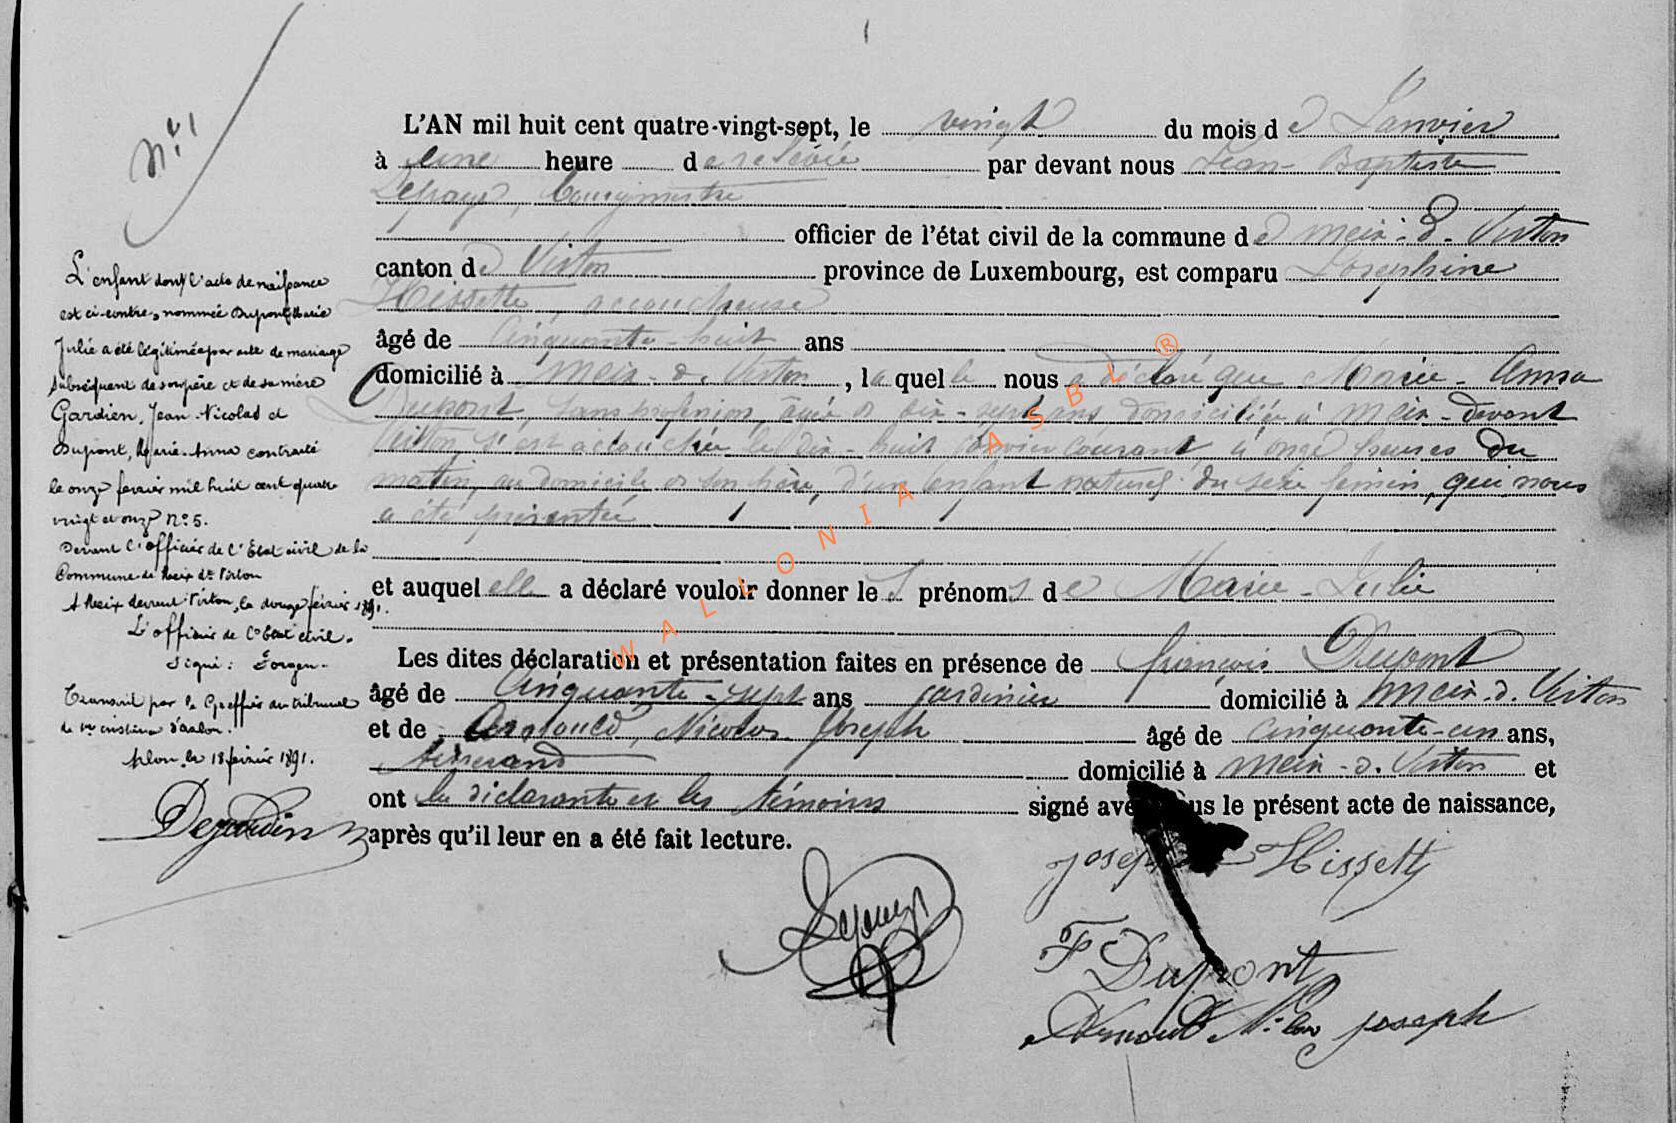 N° 1
L'AN mil huit cent quatre-vingt-sept, le vingt du mois de Janvier
à une heure de relevée par devant nous Jean-Baptiste
Lepage, bourgmestre
officier de l'état civil de la commune de Meix-d. Virton
canton de Virton province de Luxembourg, est comparu Josephine
Hissette, accoucheuse
âgé de Cinquante-huit ans
domicilié à Meix-d. Virton, laquelle nous a déclaré que Marie-Anna
Dupont, sans profession, âgée de dix-sept ans domiciliée à Meix-devant
Virton s'est accouchée le dix-huit janvier courant, à onze heures du
matin, au domicile de son père, d'un enfant naturel du sexe féminin, qui nous
a été présentée
et auquel elle a déclaré vouloir donner les prénoms de Marie-Julie
Les dites déclaration et présentation faites en présence de françois Dupont
âgé de Cinquante-sept ans jardinier domicilié à Meix-d. Virton
et de Arnould, Nicolas Joseph âgé de Cinquante-un ans,
Tisserand domicilié à Meix-d. Virton et
ont la déclarante et les témoins signé avec nous le présent acte de naissance,
après qu'il leur en a été fait lecture.
Josephine Hissette
F Dupont
Arnould Nicolas joseph
L'enfant dont l'acte de naissance
est ci-contre, nommée Dupont Marie
Julie a été légitimée par acte de mariage
subséquent de son père et de sa mère
Gardien, Jean-Nicolas et
Dupont, Marie-Anna contracté
le onze fevrier mil huit cent quatre
vingt et onze N° 5.
Devant l'officier de l'Etat civil de la
Commune de Meix dt Virton
A Meix devant Virton, le douze février 1891.
L'officier de l'Etat civil.
Signé:
Transcrit par le Greffier du tribunal
de 1re instance d'Arlon.
Arlon, le 18 février 1891.
Dejardin
WALLONIA ASBL ®